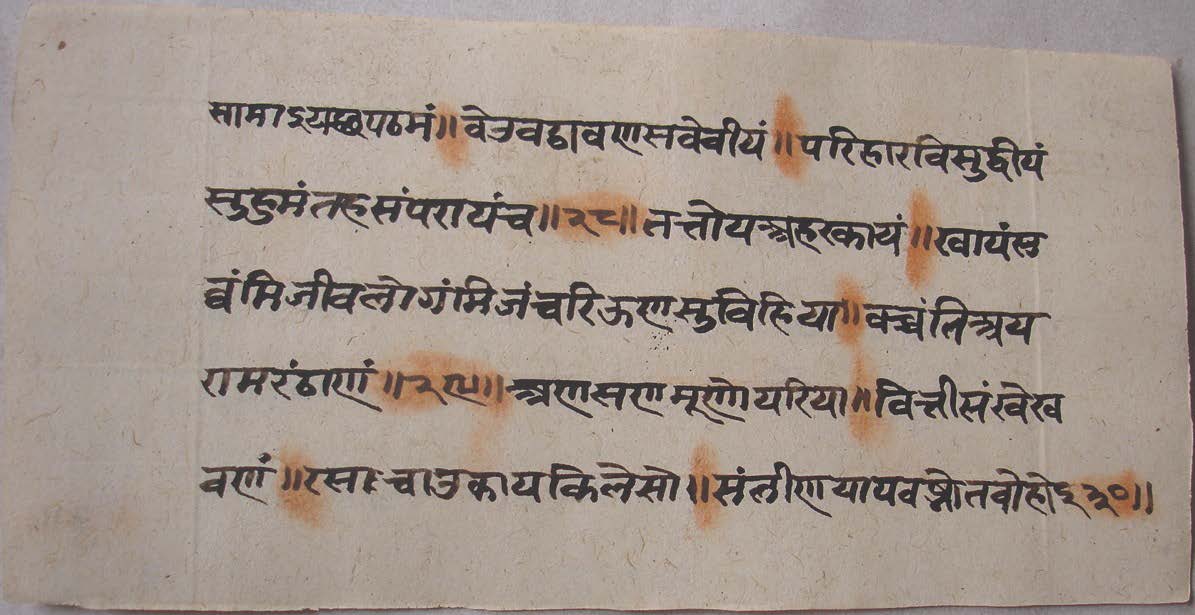 सामाइयच्छपढमं॥वेउवट्ठावणसवेवीयं॥परिहारविसुद्धीयं
सुहुमंतहसंपरायंच॥२८॥तत्तोयअहरकायं॥खायंसु
व्वंमिजीवलोगंमिजंचरिऊणसुविहिया॥वच्चंतिअय
रामरंठाणं॥२९॥अणसणमूणोयरिया॥वित्तीसंखेख
वणं॥रसाच्चाउकायकिलेसो॥संलीणयायवज्झोतवोहोइ३०॥